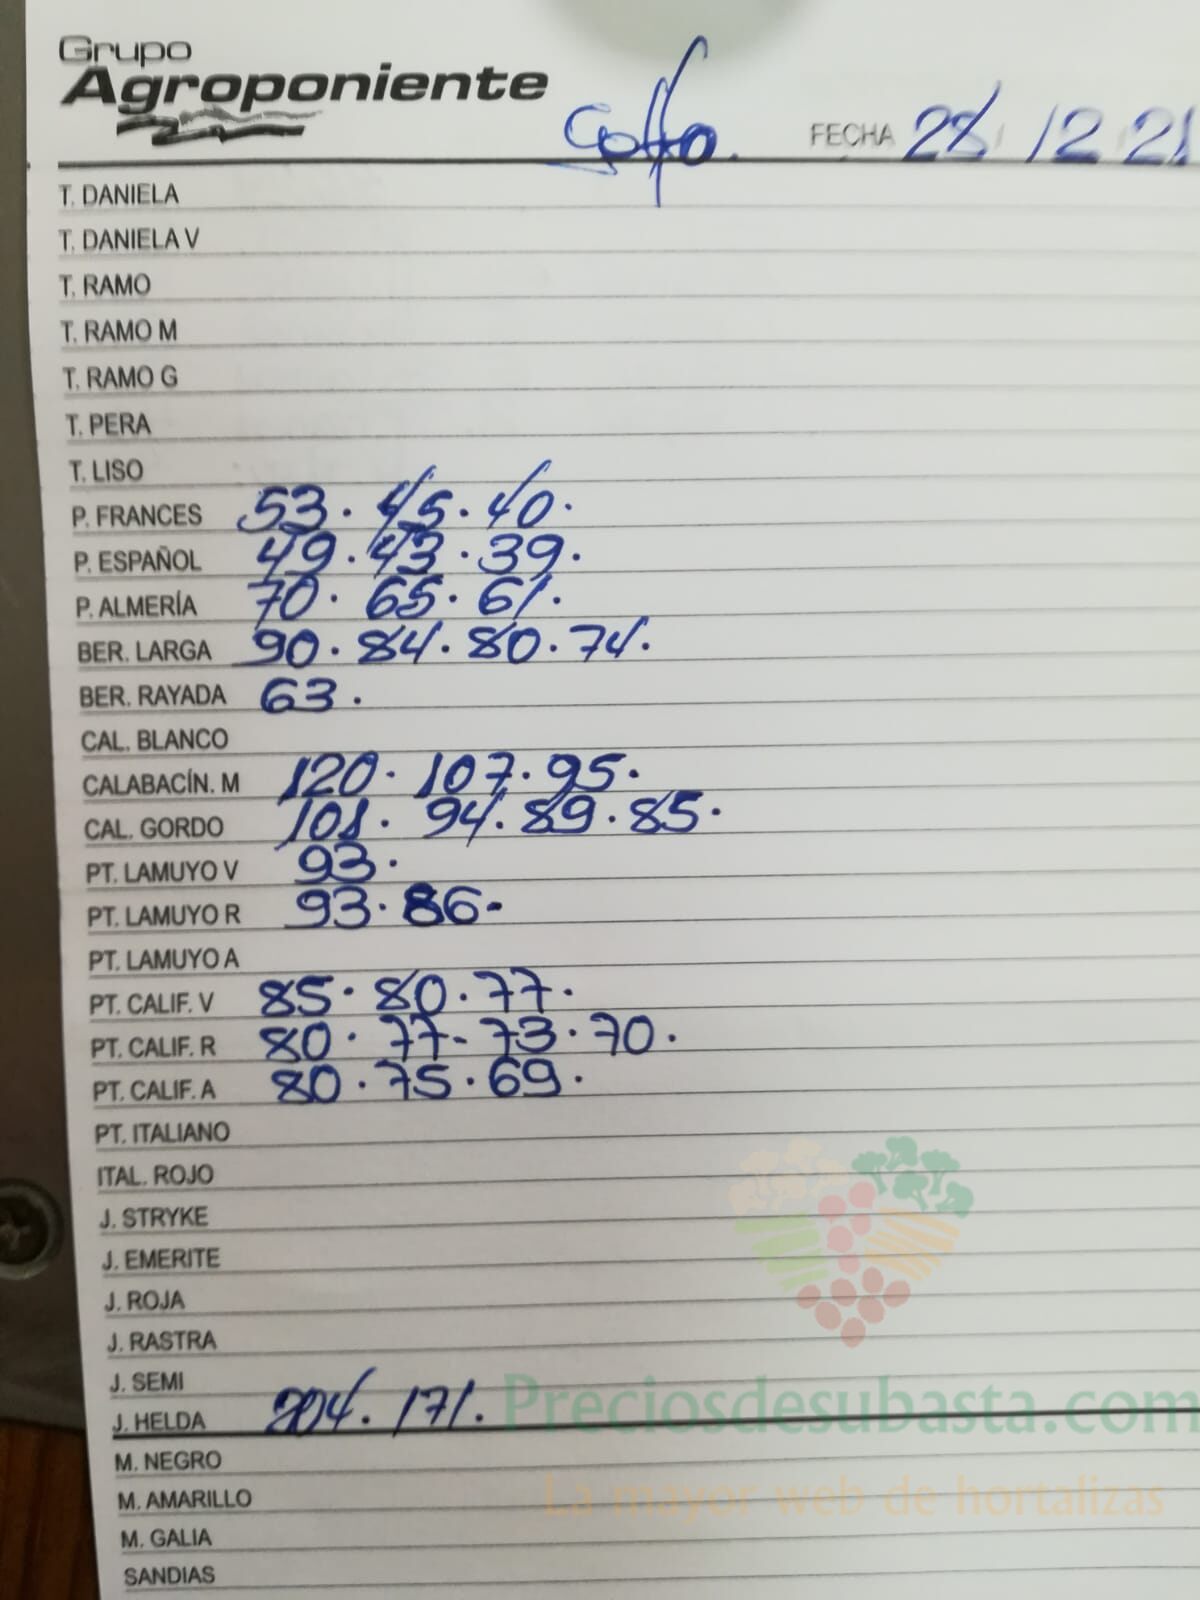 Grupo
Agroponiente
Golfo. FECHA 28/12 21
T. DANIELA
T. DANIELA V
T. RAMO
T. RAMO M
T. RAMO G
T. PERA
T. LISO
P. FRANCES 53. 45. 40.
P. ESPAÑOL 49. 43. 39.
P. ALMERÍA 70. 65. 61.
BER. LARGA 90. 84. 80. 74.
BER. RAYADA 63.
CAL. BLANCO
CALABACÍN. M 120. 107. 95.
CAL. GORDO 101. 94. 89. 85.
PT. LAMUYO V 93.
PT. LAMUYO R 93. 86-
PT. LAMUYO A
PT. CALIF. V 85. 80. 77.
PT. CALIF. R 80. 77- 73. 70.
PT. CALIF. A 80. 75. 69.
PT. ITALIANO
ITAL. ROJO
J. STRYKE
J. EMERITE
J. ROJA
J. RASTRA
J. SEMI
J. HELDA 204. 171.
Preciosdesubasta.com
M. NEGRO
La mayor web de hortalizas
M. AMARILLO
M. GALIA
SANDIAS